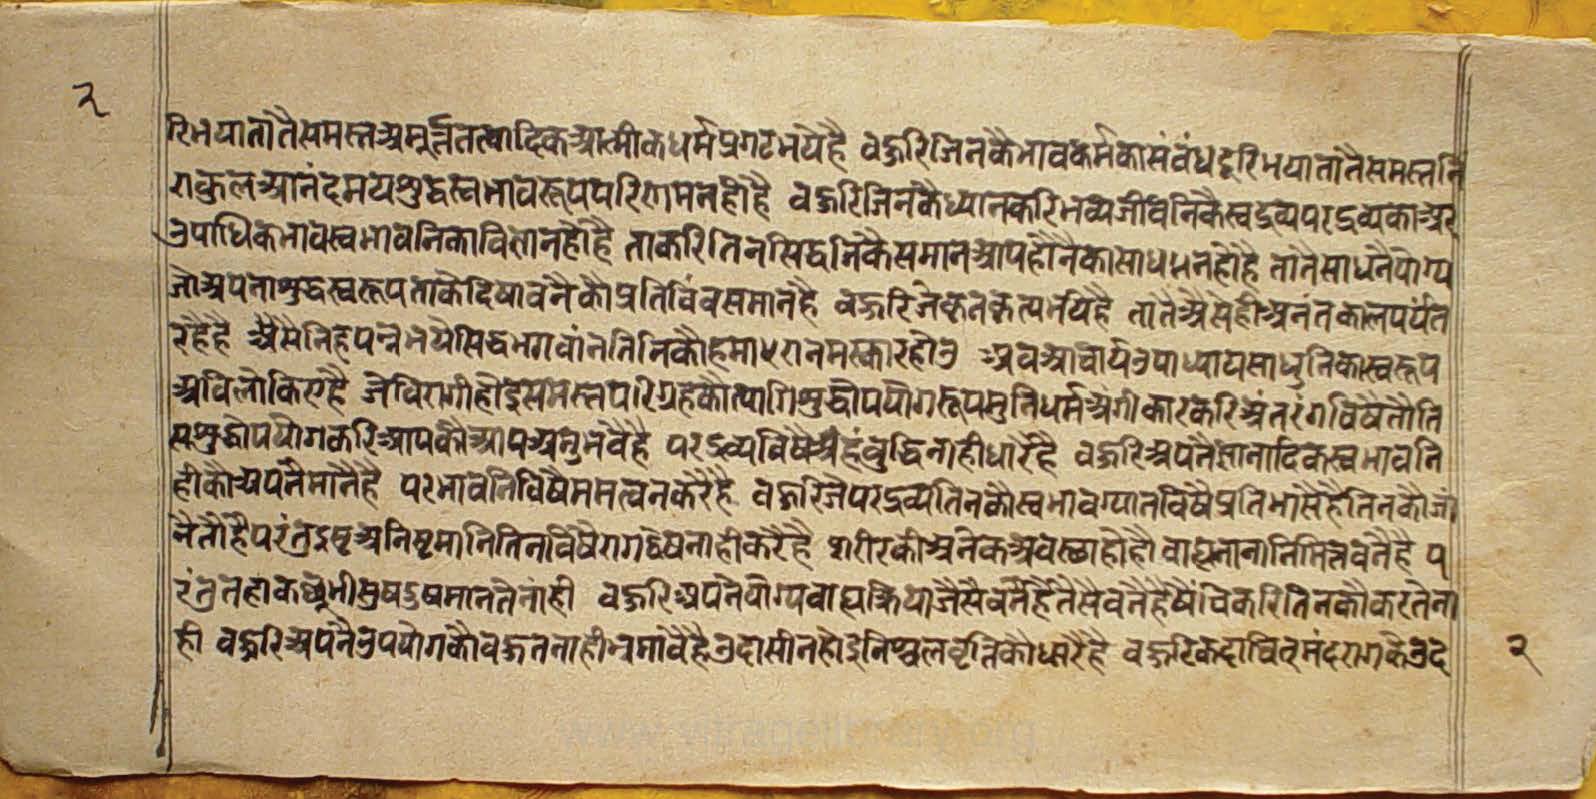 २
रिभया तातैं समस्त अमूर्त्तत्वादिक आत्मीक धर्म प्रगट भये है वहुरि जिनकै भावकर्मका संबंध दूरि भया तातैं समस्त नि
राकुल आनंदमय शुद्ध स्वभावरूप परिणमन हो है वहुरि जिनकै ध्यान करि भव्य जीवनिकै स्वद्रव्य परद्रव्यका अर
उपाधिक भाव स्वभावनिका विज्ञान हो है ताकरि तिन सिद्धनिकै समान आप होनैका साधन हो है तातैं साधनै योग्य
जो अपना शुद्ध स्वरूप ताके दिषावनैकौ प्रतिविंव समान है वहुरि जे कृतकृत्य भये है तातैं असैही अनंत काल पर्यंत
रहै है अैसे निहपन्न भये सिद्ध भगवांन तिनिकौ हमारा नमस्कार होउ अव आचार्य उपाध्याय साधुनिका स्वरूप
अविलोकिए है जे विरागी होइ समस्त परिग्रहकौ त्यागि शुद्धोपयोगरूप मुनिधर्म अंगीकार करि अंतरंगविषै तौ ति
स शुद्धोपयोग करि आपकौ आप अनुभवै है परद्रव्यविषै अहंवुद्धि नाही धारै है वहुरि अपनै ज्ञानादिक स्वभावनि
हीकौ अपनै मानै है परभावनिविषै ममत्व न करै है वहुरि जे परद्रव्य तिनकौ स्वभाव ग्यानविषै प्रतिभासै है तिनकौ जां
नै तौ है परंतु इष्ट अनिष्ट मानि तिनविषै राग द्वेष नाही करै है शरीरकी अनेक अवस्था हो है वाह्य नाना निमित्त वनै है प
रंतु तहां कछू भी सुष दुष मानते नांही वहुरि अपनै योग्य वाह्य क्रिया जैसै वनै है तैसै वनै है षैंचि करि तिनकौ करते ना
ही वहुरि अपनै उपयोगकौ वहुत नाही भ्रमावै है उदासीन होइ निश्चल वृत्तिकौ धारै है वहुरि कदाचित् मंदरागकै उद
२
www.vitragelibrary.org